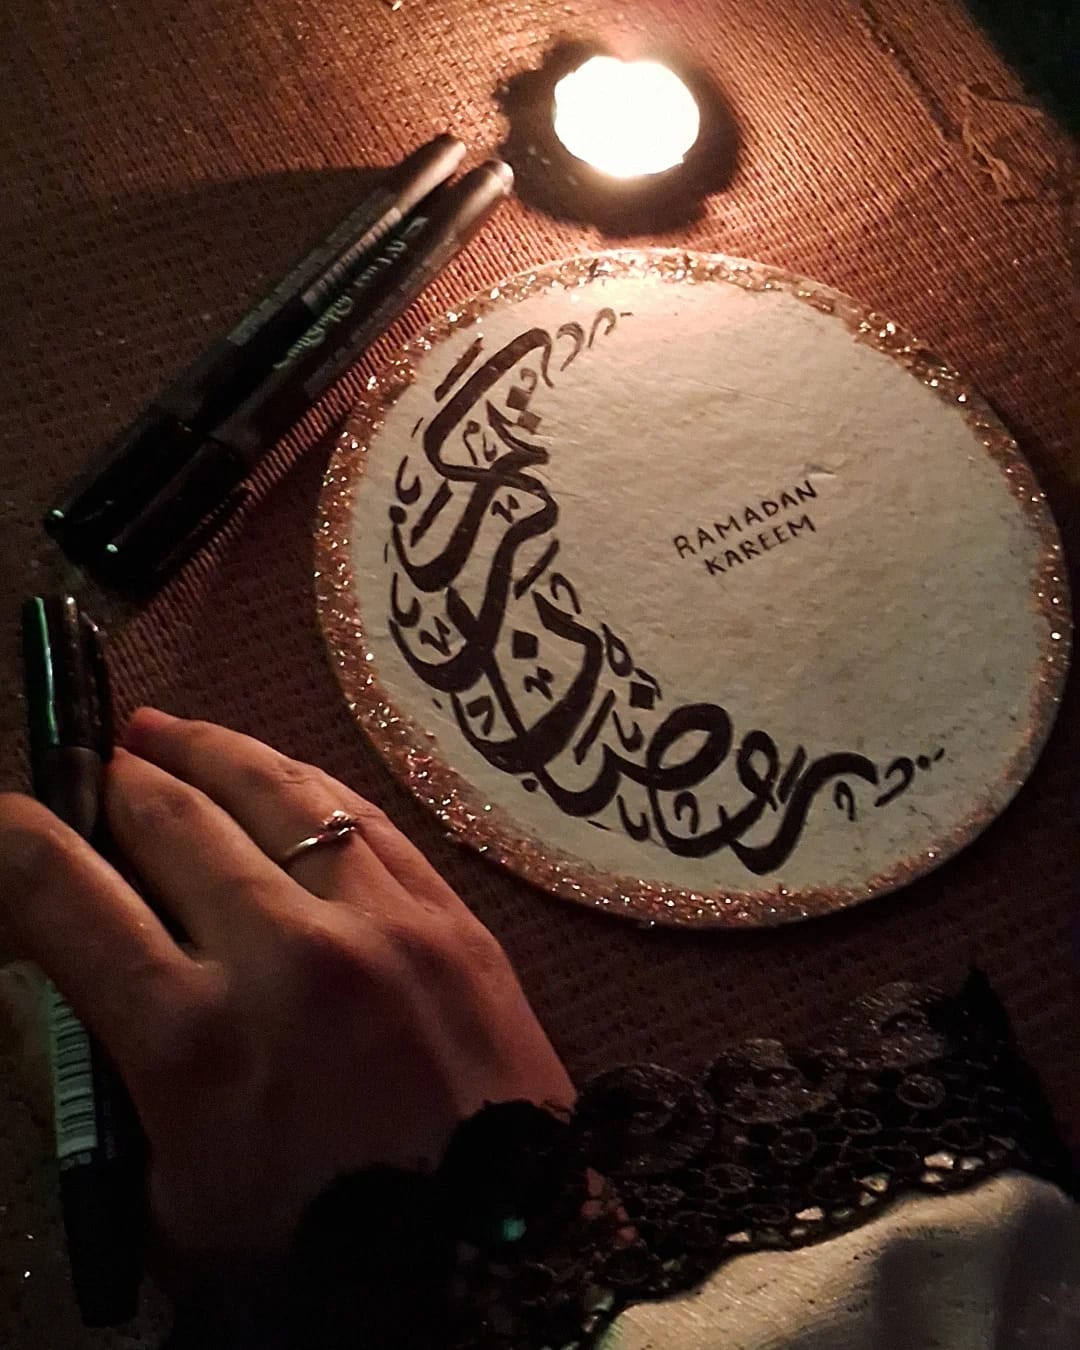 رمضان كريم
RAMADAN
KAREEM